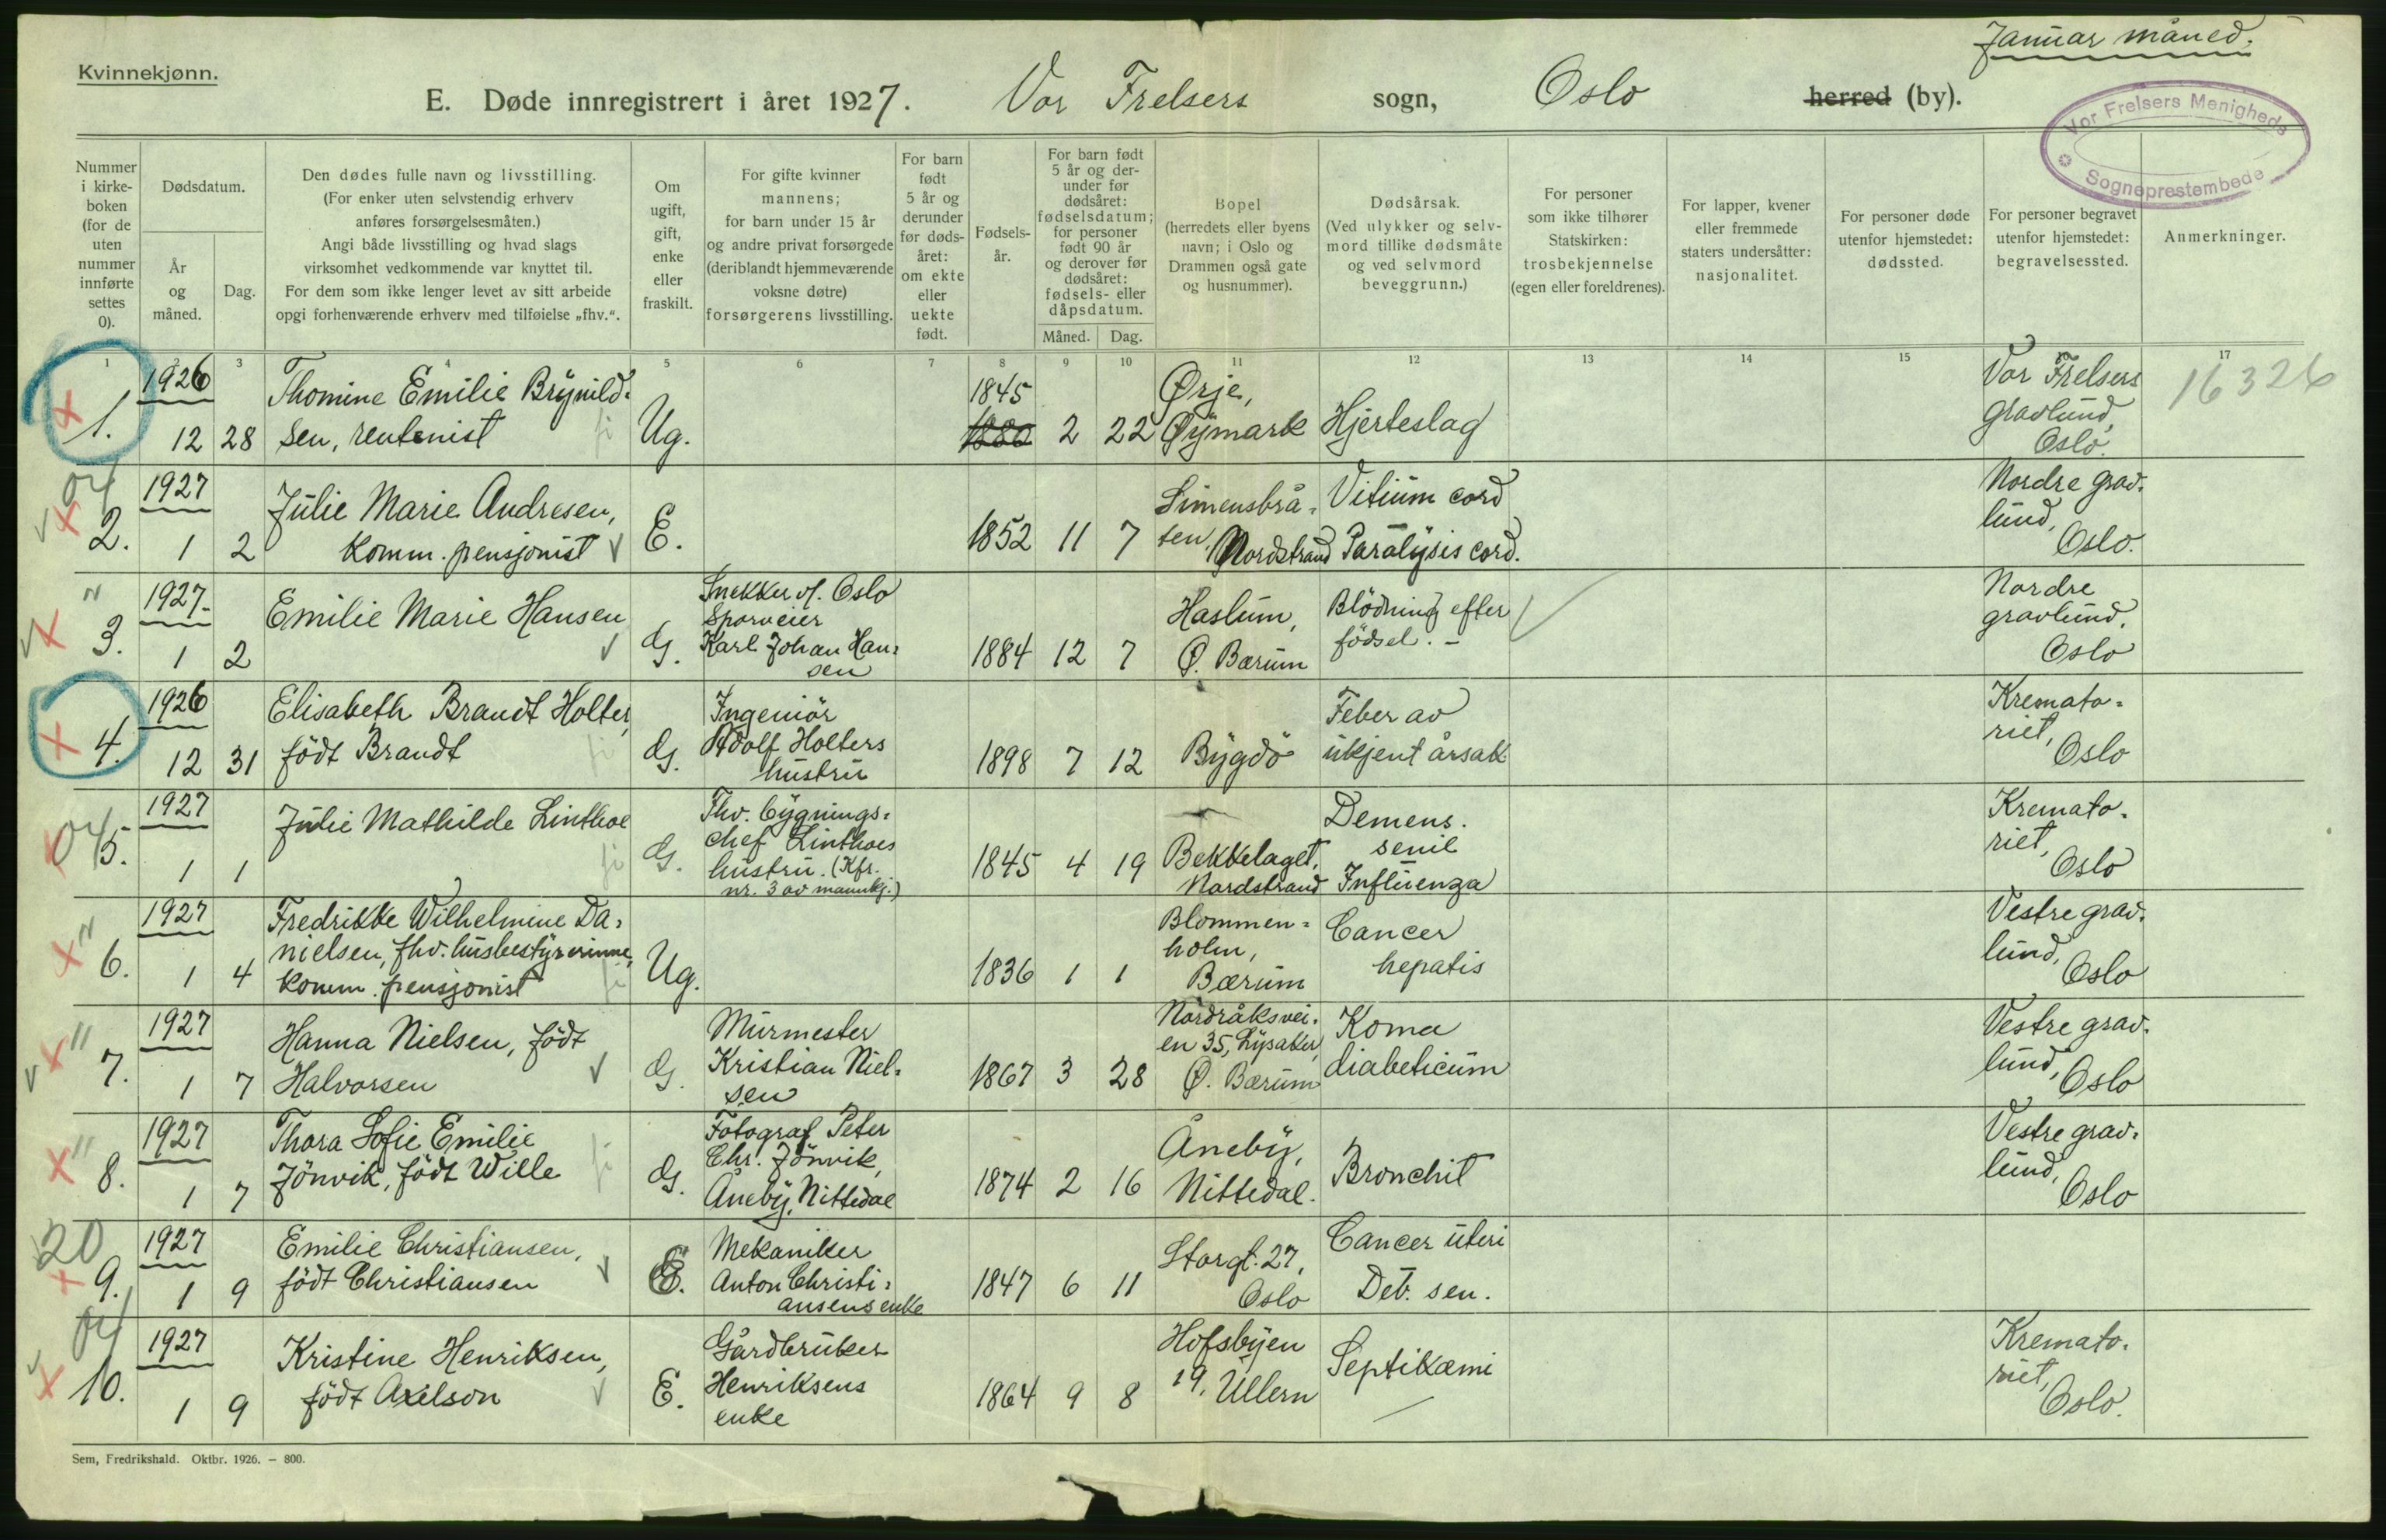 Januar måned.
Kvinnekjønn.
E. Døde innregistrert i året 1927. Vor Frelsers sogn, Oslo herred (by).
Vor Frelsers Menigheds
Sogneprestembede
Nummer i kirke-boken (for de uten nummer innførte settes 0).
Dødsdatum.
År og måned.
Dag.
Den dødes fulle navn og livsstilling.
(For enker uten selvstendig erhverv
anføres forsørgelsesmåten.)
Angi både livsstilling og hvad slags
virksomhet vedkommende var knyttet til.
For dem som ikke lenger levet av sitt arbeide
opgi forhenværende erhverv med tilføielse „fhv.“.
Om ugift, gift, enke eller fraskilt.
For gifte kvinner
mannens;
for barn under 15 år
og andre privat forsørgede
(deriblandt hjemmeværende
voksne døtre)
forsørgerens livsstilling.
For barn født 5 år og derunder før døds-året: om ekte eller uekte født.
Fødsels-år.
For barn født
5 år og der-
under før
dødsåret:
fødselsdatum;
for personer
født 90 år
og derover før
dødsåret:
fødsels- eller
dåpsdatum.
Måned. Dag.
Bopel
(herredets eller byens
navn; i Oslo og
Drammen også gate
og husnummer).
Dødsårsak.
(Ved ulykker og selv-
mord tillike dødsmåte
og ved selvmord
beveggrunn.)
For personer
som ikke tilhører
Statskirken:
trosbekjennelse
(egen eller foreldrenes).
For lapper, kvener
eller fremmede
staters undersåtter:
nasjonalitet.
For personer døde
utenfor hjemstedet:
dødssted.
For personer begravet
utenfor hjemstedet:
begravelsessted.
Anmerkninger.
1 2 3 4 5 6 7 8 9 10 11 12 13 14 15 17
1. 1926 12 28
Thomine Emilie Brynild-
sen, rentenist
Ug.
1845
1880 2 22
Ørje,
Øymark
Hjerteslag
Vor Frelsers
gravlund,
Oslo.
16326
04
2. 1927 1 2
Julie Marie Andresen,
komm. pensjonist
E.
1852 11 7
Simensbrå-
ten, Nordstrand
Vitium cord
Paralysis cord.
Nordre grav-
lund,
Oslo.
3. 1927 1 2
Emilie Marie Hansen
G.
Snekker v. Oslo
Sporveier
Karl Johan Han-
sen
1884 12 7
Haslum,
Ø. Bærum
Blödning efter
födsel. -
Nordre
gravlund,
Oslo
4. 1926 12 31
Elisabeth Brandt Holter,
födt Brandt
G.
Ingeniör
Adolf Holters
hustru
1898 7 12
Bygdö
Feber av
ukjent årsak
Kremato-
riet,
Oslo
04
5. 1927 1 1
Julie Mathilde Linthoe
G.
Fhv. bygnings-
chef Linthoes
hustru. (Kfr.
nr. 3 av mannkj.)
1845 4 19
Bekkelaget,
Nordstrand
Demens.
senil
Influenza
Kremato-
riet,
Oslo
6. 1927 1 4
Fredrikke Wilhelmine Da-
nielsen, fhv. husbestyrerinne,
komm. pensjonist
Ug.
1836 1 1
Blommen-
holm,
Bærum
Cancer
hepatis
Vestre grav-
lund,
Oslo
7. 1927 1 7
Hanna Nielsen, födt
Halvorsen
G.
Murmester
Kristian Niel-
sen
1867 3 28
Nordråksvei-
en 35, Lysaker,
Ø. Bærum
Koma
diabeticum
Vestre grav-
lund,
Oslo
8. 1927 1 7
Thora Sofie Emilie
Jönvik, födt Wille
G.
Fotograf Peter
Chr. Jönvik,
Åneby, Nittedal
1874 2 16
Åneby,
Nittedal.
Bronchit
Vestre grav-
lund,
Oslo
20
9. 1927 1 9
Emilie Christiansen,
födt Christiansen
E.
Mekaniker
Anton Christi-
ansens enke
1847 6 11
Storgt. 27,
Oslo
Cancer uteri
Deb. sen.
04
10. 1927 1 9
Kristine Henriksen,
födt Axelson
E.
Gårdbruker
Henriksens
enke
1864 9 8
Hofsbyen
19, Ullern
Septikæmi
Kremato-
riet,
Oslo.
Sem, Fredrikshald. Oktbr. 1926. – 800.